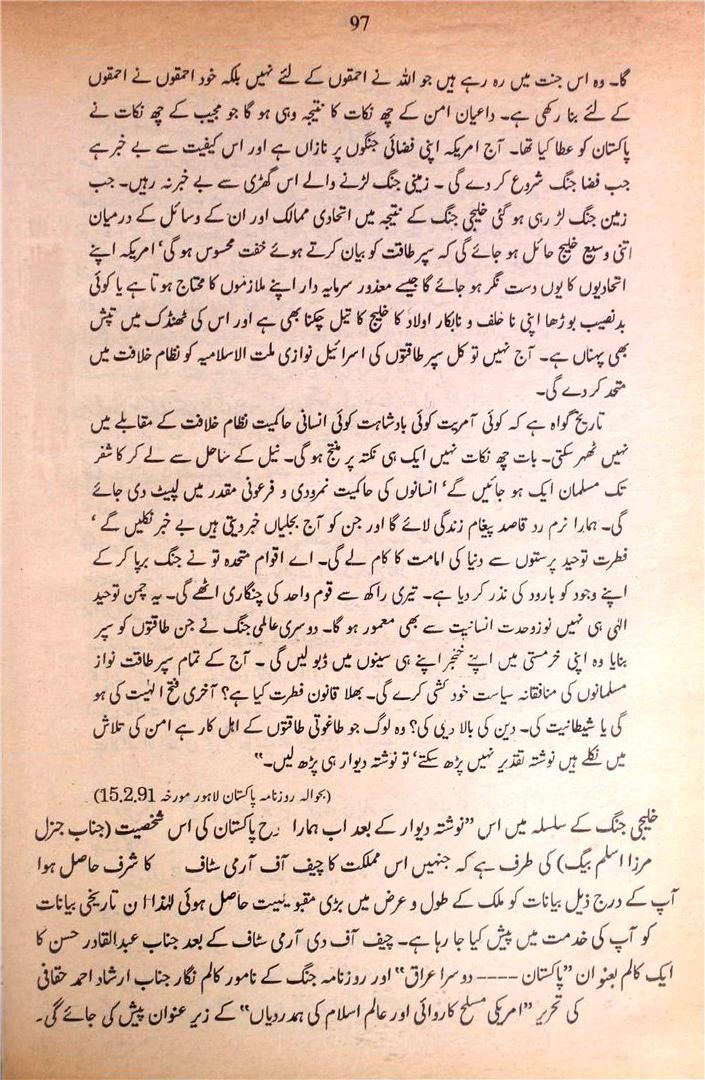 97
گا۔ وہ اس جنت میں رہ رہے ہیں جو اللہ نے احمقوں کے لئے نہیں بلکہ خود احمقوں نے احمقوں
کے لئے بنا رکھی ہے۔ داعیان امن کے چھ نکات کا نتیجہ وہی ہو گا جو مجیب کے چھ نکات نے
پاکستان کو عطا کیا تھا۔ آج امریکہ اپنی فضائی جنگوں پر نازاں ہے اور اس کیفیت سے بے خبر ہے
جب فضا جنگ شروع کر دے گی ۔ زمینی جنگ لڑنے والے اس گھڑی سے بے خبر نہ رہیں۔ جب
زمین جنگ لڑ رہی ہو گئی خلیجی جنگ کے نتیجہ میں اتحادی ممالک اور ان کے وسائل کے درمیان
اتنی وسیع خلیج حائل ہو جائے گی کہ سپر طاقت کو بیان کرتے ہوئے خفت محسوس ہو گی‘ امریکہ اپنے
اتحادیوں کا یوں دست نگر ہو جائے گا جیسے معذور سرمایہ دار اپنے ملازموں کا محتاج ہوتا ہے یا کوئی
بدنصیب بوڑھا اپنی نا خلف و نابکار اولاد کا خلیج کا تیل چکنا بھی ہے اور اس کی ٹھنڈک میں تپش
بھی پنہاں ہے۔ آج نہیں تو کل سپر طاقتوں کی اسرائیل نوازی ملت الاسلامیہ کو نظام خلافت میں
متحد کر دے گی۔
تاریخ گواہ ہے کہ کوئی آمریت کوئی بادشاہت کوئی انسانی حاکمیت نظام خلافت کے مقابلے میں
نہیں ٹھہر سکتی۔ بات چھ نکات نہیں ایک ہی نکتہ پر منتج ہو گی۔ نیل کے ساحل سے لے کر کاشغر
تک مسلمان ایک ہو جائیں گے‘ انسانوں کی حاکیت نمرودی و فرعونی مقدر میں لپیٹ دی جائے
گی۔ ہمارا نرم رد قاصد پیغام زندگی لائے گا اور جن کو آج بجلیاں خبر دیتی ہیں بے خبر نکلیں گے ‘
فطرت توحید پرستوں سے دنیا کی امامت کا کام لے گی۔ اے اقوام متحدہ تو نے جنگ برپا کر کے
اپنے وجود کو بارود کی نذر کر دیا ہے۔ تیری راکھ سے قوم واحد کی چنگاری اٹھے گی۔ یہ چمن توحید
الٰہی ہی نہیں نوزوحدت انسانیت سے بھی معمور ہو گا۔ دوسری عالمی جنگ نے جن طاقتوں کو سپر
بنایا وہ اپنی خرمستی میں اپنے خنجر اپنے ہی سینوں میں ڈبو لیں گی ۔ آج کے تمام سپر طاقت نواز
مسلمانوں کی منافقانہ سیاست خود کشی کرے گی۔ بھلا قانون فطرت کیا ہے؟ آخری فتح الہٰیت کی ہو
گی یا شیطانیت کی۔ دین کی بالا دیی کی؟ وہ لوگ جو طاغوتی طاقتوں کے اہل کار ہے امن کی تلاش
میں نکلے ہیں نوشتہ تقدیر نہیں پڑھ سکتے‘ تو نوشتہ دیوار ہی پڑھ لیں۔“
(بحوالہ روزنامہ پاکستان لاہور مورخہ 15.2.91)
خلیجی جنگ کے سلسلہ میں اس ”نوشتہ دیوار کے بعد اب ہمارا رخ پاکستان کی اس شخصیت (جناب جنرل
مرزا اسلم بیگ) کی طرف ہے کہ جنہیں اس مملکت کا چیف آف آرمی سٹاف کا شرف حاصل ہوا
آپ کے درج ذیل بیانات کو ملک کے طول و عرض میں بڑی مقبولیت حاصل ہوئی لہٰذا ان تاریخی بیانات
کو آپ کی خدمت میں پیش کیا جا رہا ہے۔ چیف آف دی آرمی سٹاف کے بعد جناب عبدالقادر حسن کا
ایک کالم بعنوان ”پاکستان ---- دوسرا عراق“ اور روزنامہ جنگ کے نامور کالم نگار جناب ارشاد احمد حقانی
کی تحریر ”امریکی مسلح کاروائی اور عالم اسلام کی ہمدردیاں“ کے زیر عنوان پیش کی جائے گی۔